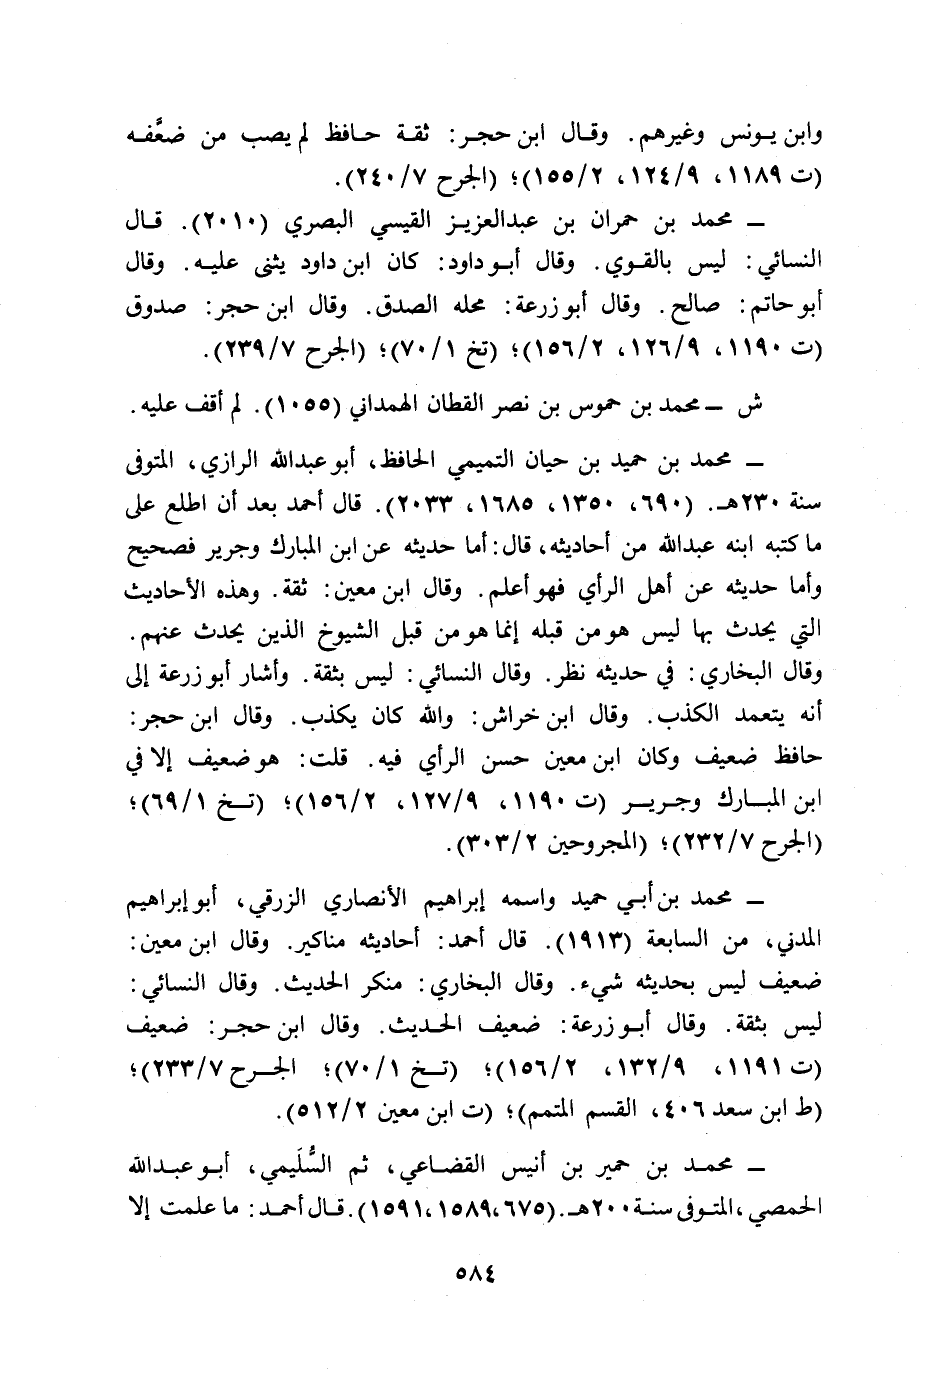 وابن يونس وغيرهم. وقال ابن حجر: ثقة حافظ لم يصب من ضعَّفه
(ت ١١٨٩، ١٢٤/٩، ١٥٥/٢)؛ (الجرح ٢٤٠/٧).
ــ محمد بن حمران بن عبدالعزيز القيسي البصري (٢٠١٠). قال
النسائي: ليس بالقوي. وقال أبو داود: كان ابن داود يثنى عليه. وقال
أبو حاتم: صالح. وقال أبو زرعة: محله الصدق. وقال ابن حجر: صدوق
(ت ١١٩٠، ١٢٦/٩، ١٥٦/٢)؛ (تخ ٧٠/١)؛ (الجرح ٢٣٩/٧).
ش ــ محمد بن حموس بن نصر القطان الهمداني (١٠٥٥). لم أقف عليه.
ــ محمد بن حميد بن حيان التميمي الحافظ، أبو عبدالله الرازي، المتوفى
سنة ٢٣٠هـ. (٦٩٠، ١٣٥٠، ١٦٨٥، ٢٠٣٣). قال أحمد بعد أن اطلع على
ما كتبه ابنه عبدالله من أحاديثه، قال: أما حديثه عن ابن المبارك وجرير فصحيح
وأما حديثه عن أهل الرأي فهو أعلم. وقال ابن معين: ثقة. وهذه الأحاديث
التي يحدث بها ليس هو من قبله إنما هو من قبل الشيوخ الذين يحدث عنهم.
وقال البخاري: في حديثه نظر. وقال النسائي: ليس بثقة. وأشار أبو زرعة إلى
أنه يتعمد الكذب. وقال ابن خراش: والله كان يكذب. وقال ابن حجر:
حافظ ضعيف وكان ابن معين حسن الرأي فيه. قلت: هو ضعيف إلا في
ابن المبارك وجرير (ت ١١٩٠، ١٢٧/٩، ١٥٦/٢)؛ (تخ ٦٩/١)؛
(الجرح ٢٣٢/٧)؛ (المجروحين ٣٠٣/٢).
ــ محمد بن أبي حميد واسمه إبراهيم الأنصاري الزرقي، أبو إبراهيم
المدني، من السابعة (١٩١٣). قال أحمد: أحاديثه مناكير. وقال ابن معين:
ضعيف ليس بحديثه شيء. وقال البخاري: منكر الحديث. وقال النسائي:
ليس بثقة. وقال أبو زرعة: ضعيف الحديث. وقال ابن حجر: ضعيف
(ت ١١٩١، ١٣٢/٩، ١٥٦/٢)؛ (تخ ٧٠/١)؛ الجرح ٢٣٣/٧)؛
(ط ابن سعد ٤٠٦، القسم المتمم)؛ (ت ابن معين ٥١٢/٢).
ــ محمد بن حمير بن أنيس القضاعي، ثم السُّلَيمي، أبو عبدالله
الحمصي، المتوفى سنة ٢٠٠هـ. (٦٧٥، ١٥٨٩، ١٥٩١). قال أحمد: ما علمت إلا
٥٨٤